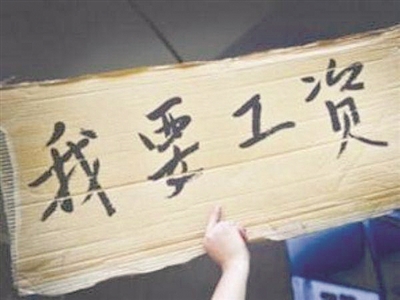 我要工资